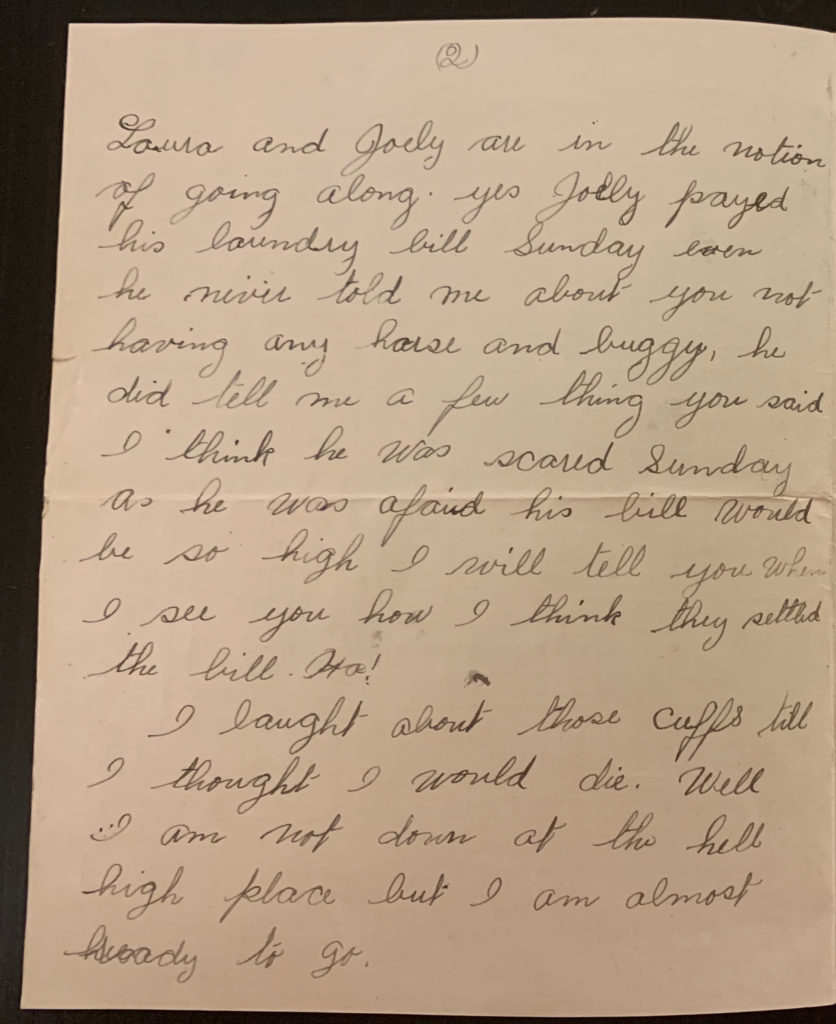 (2)
Laura and Joely are in the notion
of going along. yes Joely payed
his laundry bill Sunday even
he never told me about you not
having any horse and buggy, he
did tell me a few thing you said
I think he was scared Sunday
as he was afaid his bill would
be so high I will tell you when
I see you how I think they settled
the bill. Ha!
I laught about those cuffs till
I thought I would die. Well
I am not down at the hell
high place but I am almost
ready to go.